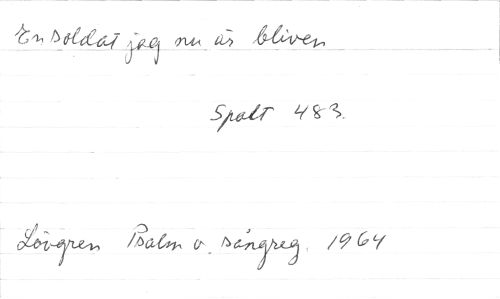 En soldat jag nu är bliven
Spalt 483.
Lövgren Psalm o. sångreg. 1964